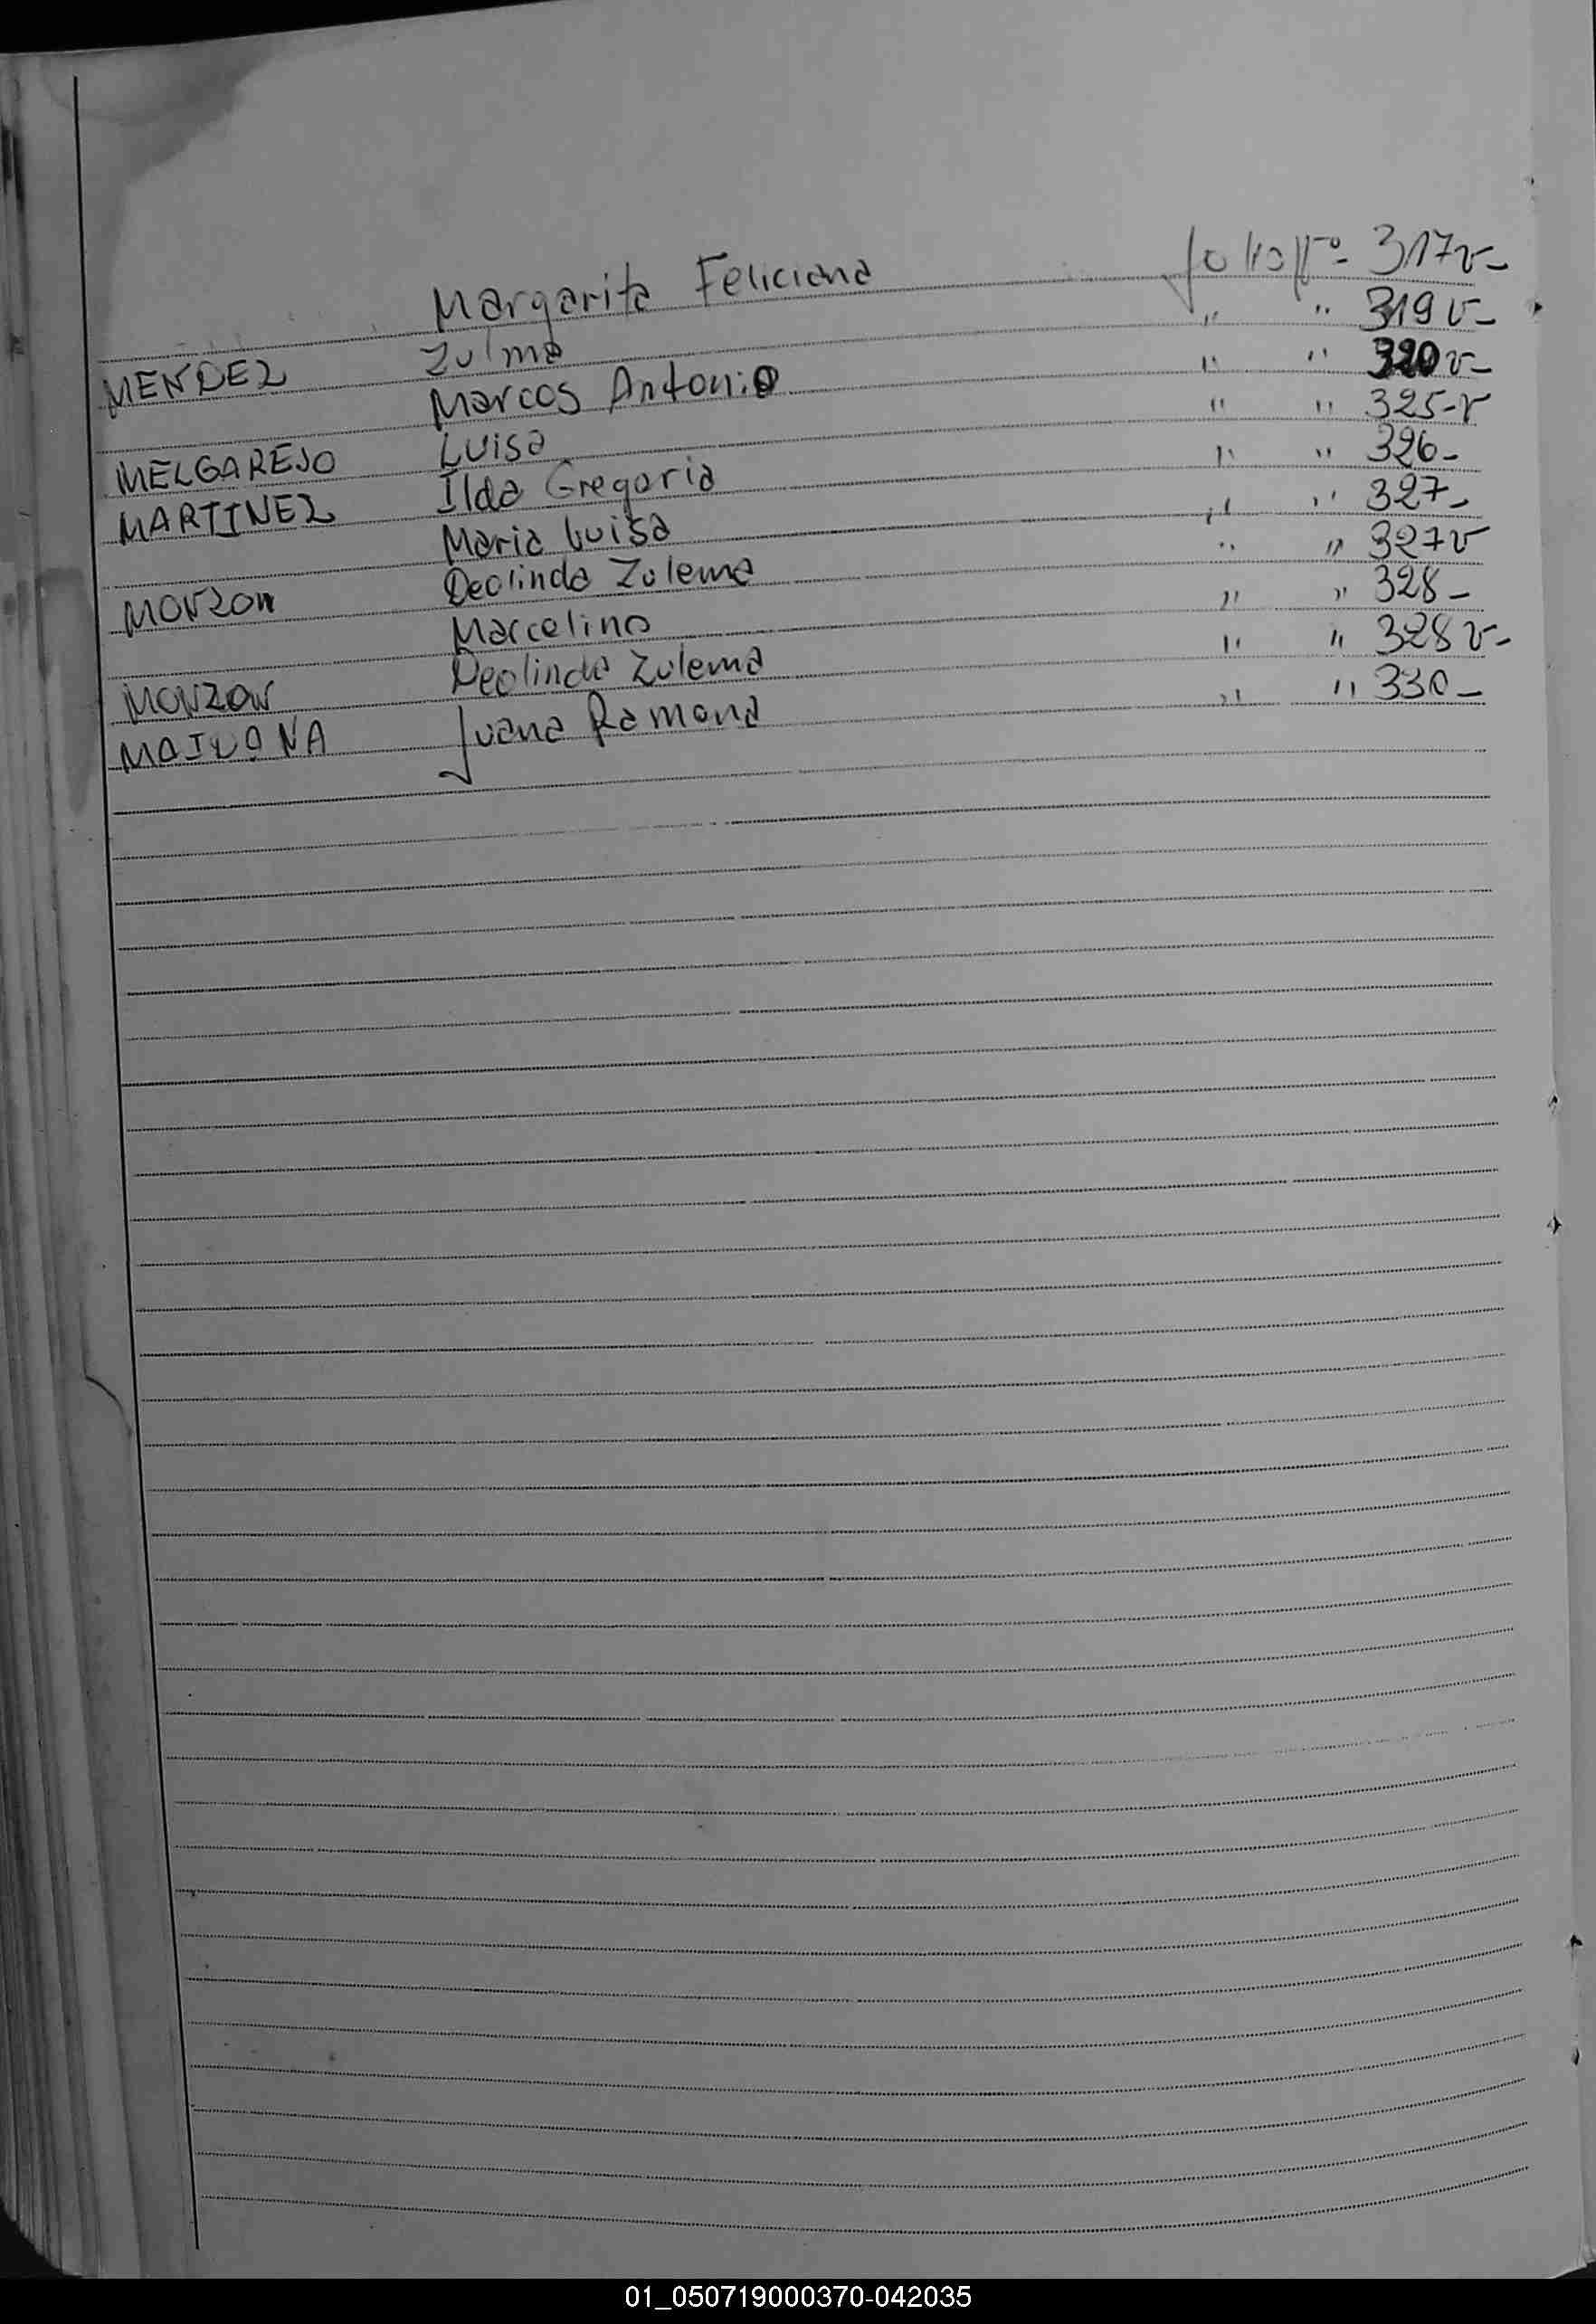 Margarita Feliciana folio Nº 317v-
MENDEZ Zulma " " 319v-
Marcos Antonio " " 320v-
MELGAREJO Luisa " " 325-v
MARTINEZ Ilda Gregoria " " 326-
Maria Luisa " " 327-
MONZON Deolinda Zulema " " 327v
Marcelino " " 328-
MONZON Deolinda Zulema " " 328v-
MAIDANA Juana Ramona " " 330-
01_050719000370-042035